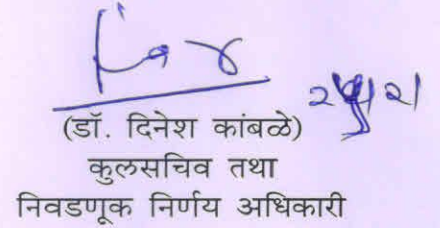 (डॉ. दिनेश कांबळे)
कुलसचिव तथा
निवडणूक निर्णय अधिकारी